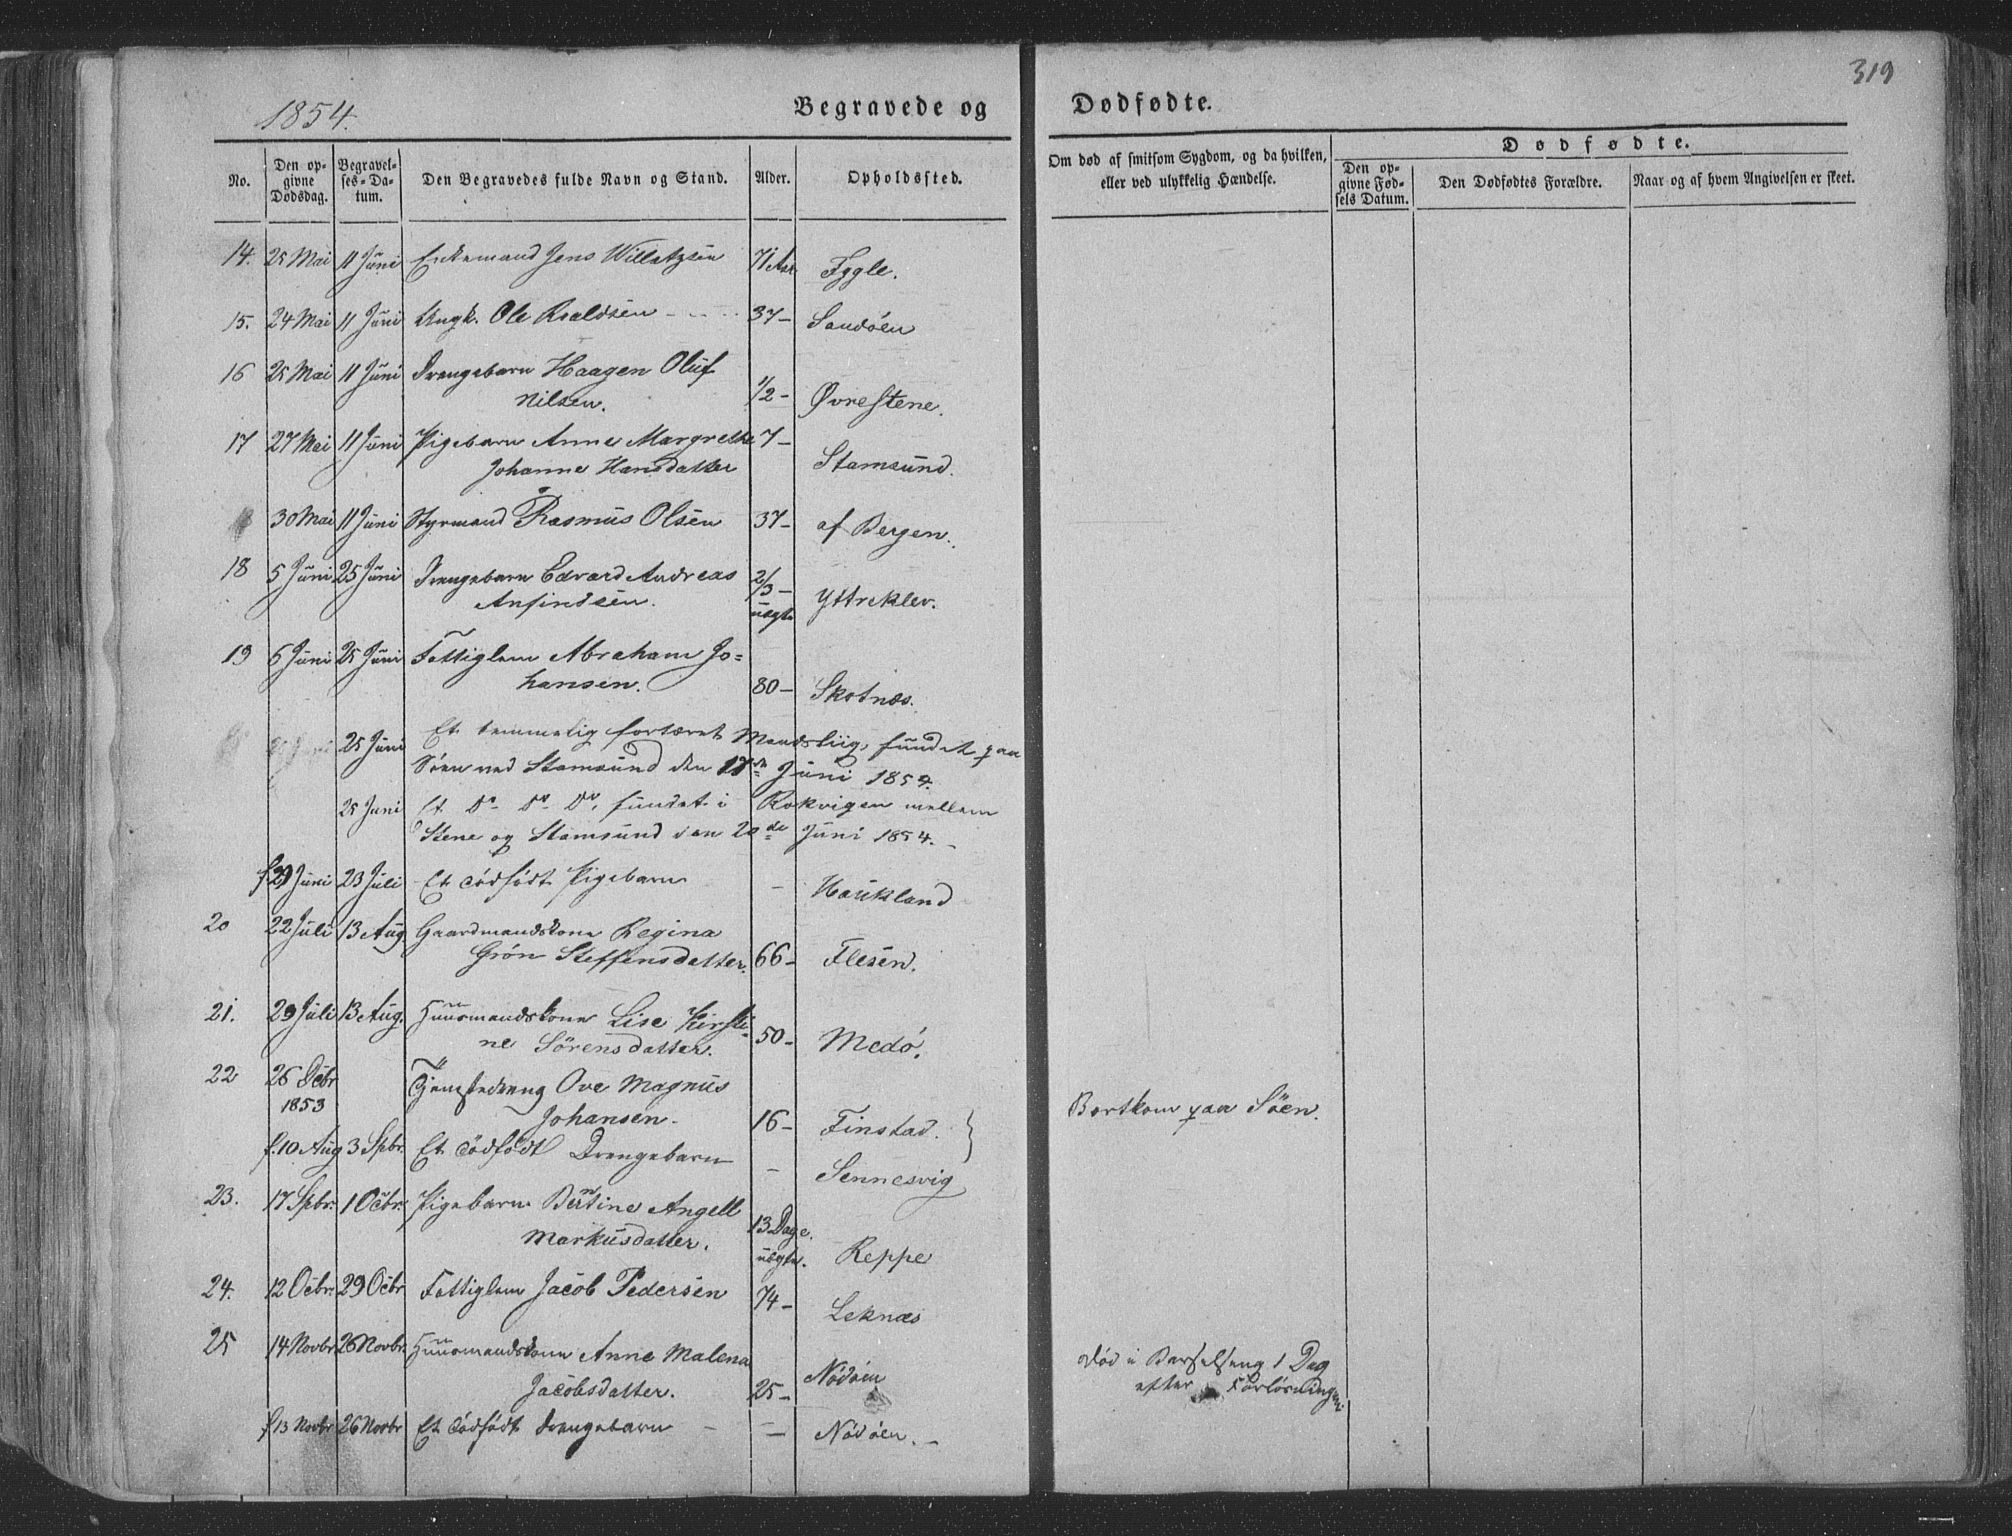 319
1854.
Begravede og Dødfødte.
No. Den opgivne Dødsdag. Begravelses-Datum. Den Begravedes fulde Navn og Stand. Alder. Opholdssted. Om død af smitsom Sygdom, og da hvilken, eller ved ulykkelig Hændelse. Dødfødte. Den opgivne Fødsels Datum. Den Dødfødtes Forældre. Naar og af hvem Angivelsen er skeet.
14. 25 Mai 11 Juni Enkemand Jens Willatzsen 71 Aar Fygle.
15. 24 Mai 11 Juni Ungk. Ole Roaldsen 37 - Sandöen
16 25 Mai 11 Juni Drengebarn Haagen Oluf
Nilsen. 1/2 - Øvrestene.
17 27 Mai 11 Juni Pigebarn Anne Margrethe 7 -
Johanne Hansdatter Stamsund.
30 Mai 11 Juni Styrmand Rasmus Olsen 37 - af Bergen.
18 5 Juni 25 Juni Drengebarn Edvard Andreas 2/3 -
Anfindsen. uægte Yttreklev.
19 6 Juni 25 Juni Fattiglem Abraham Jo=
hansen. 80 - Skotnæs.
25 Juni Et temmelig fortæret Mandsliig, fundet paa
Söen ved Stamsund den 17de Juni 1854.
25 Juni Et Do Do Do, fundet i Rokvigen mellem
Stene og Stamsund den 20de Juni 1854. -
f. 29 Juni 23 Juli Et dödfödt Pigebarn - Haukland
20 22 Juli 13 Aug Gaardmandskone Regina
Grön Steffensdatter. 66 - Flesen.
21. 29 Juli 13 Aug. Huusmandskone Lise Kirsti-
ne Sörensdatter. 50 - Medö.
22 26 Octbr Tjenstedreng Ove Magnus
1853 Johansen. 16 - Finstad. } Bortkom paa Söen.
f. 10 Aug 3 Spbr. Et dödfödt Drengebarn - Sennesvig
23. 17 Spbr. 1 Octbr. Pigebarn Berntine Angell
Markusdatter. 13 Dage. uægte. Reppe
24. 12 Octbr. 29 Octbr Fattiglem Jacob Pedersen 74 - Leknæs
25 14 Novbr 26 Novbr. Huusmandskone Anne Malena
Jacobsdatter. 25 - Nödöen Död i Barselseng 1 Dag
efter Forløsningen
f 13 Novbr 26 Novbr Et dödfödt Drengebarn - - Nödöen. -